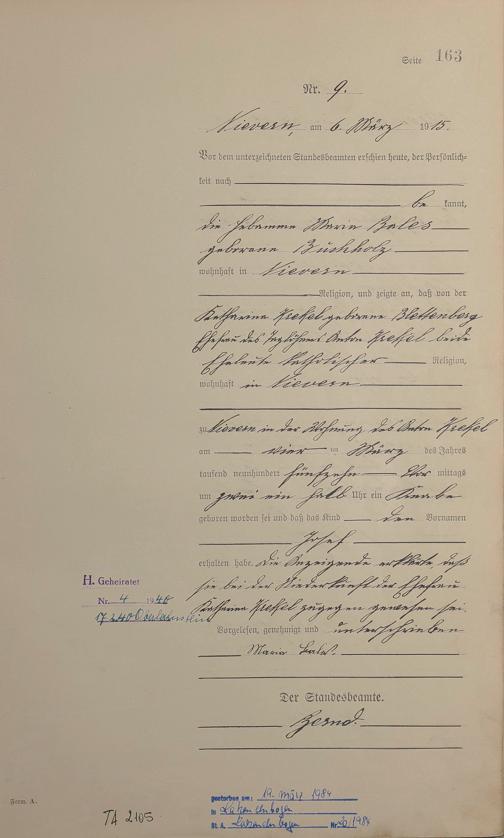 Seite 163
Nr. 9.
Nievern, am 6. März 1915.
Vor dem unterzeichneten Standesbeamten erschien heute, der Persönlich-
keit nach
be kannt,
die Hebamme Maria Bales
geborene Buchholz
wohnhaft in Nievern
Religion, und zeigte an, daß von der
Katharina geborene Blettenberg
Ehefrau des Taglöhners Anton beide
Eheleute katholischer Religion,
wohnhaft in Nievern
zu Nievern in der Wohnung des Anton
am vier ten März des Jahres
tausend neunhundert fünfzehn Vor mittags
um zwei ein halb Uhr ein Knabe
geboren worden sei und daß das Kind den Vornamen
Josef
erhalten habe. Die Anzeigende erklärte, daß
sie bei der Niederkunft der Ehefrau
Katharina zugegen gewesen sei.
Vorgelesen, genehmigt und unterschrieben
Maria Bales.
Der Standesbeamte.
H. Geheiratet
Nr. 4 1940
Form. A.
TA 2105
gestorben am: 19. März 1984
in
St. A. Nr. 20/1984